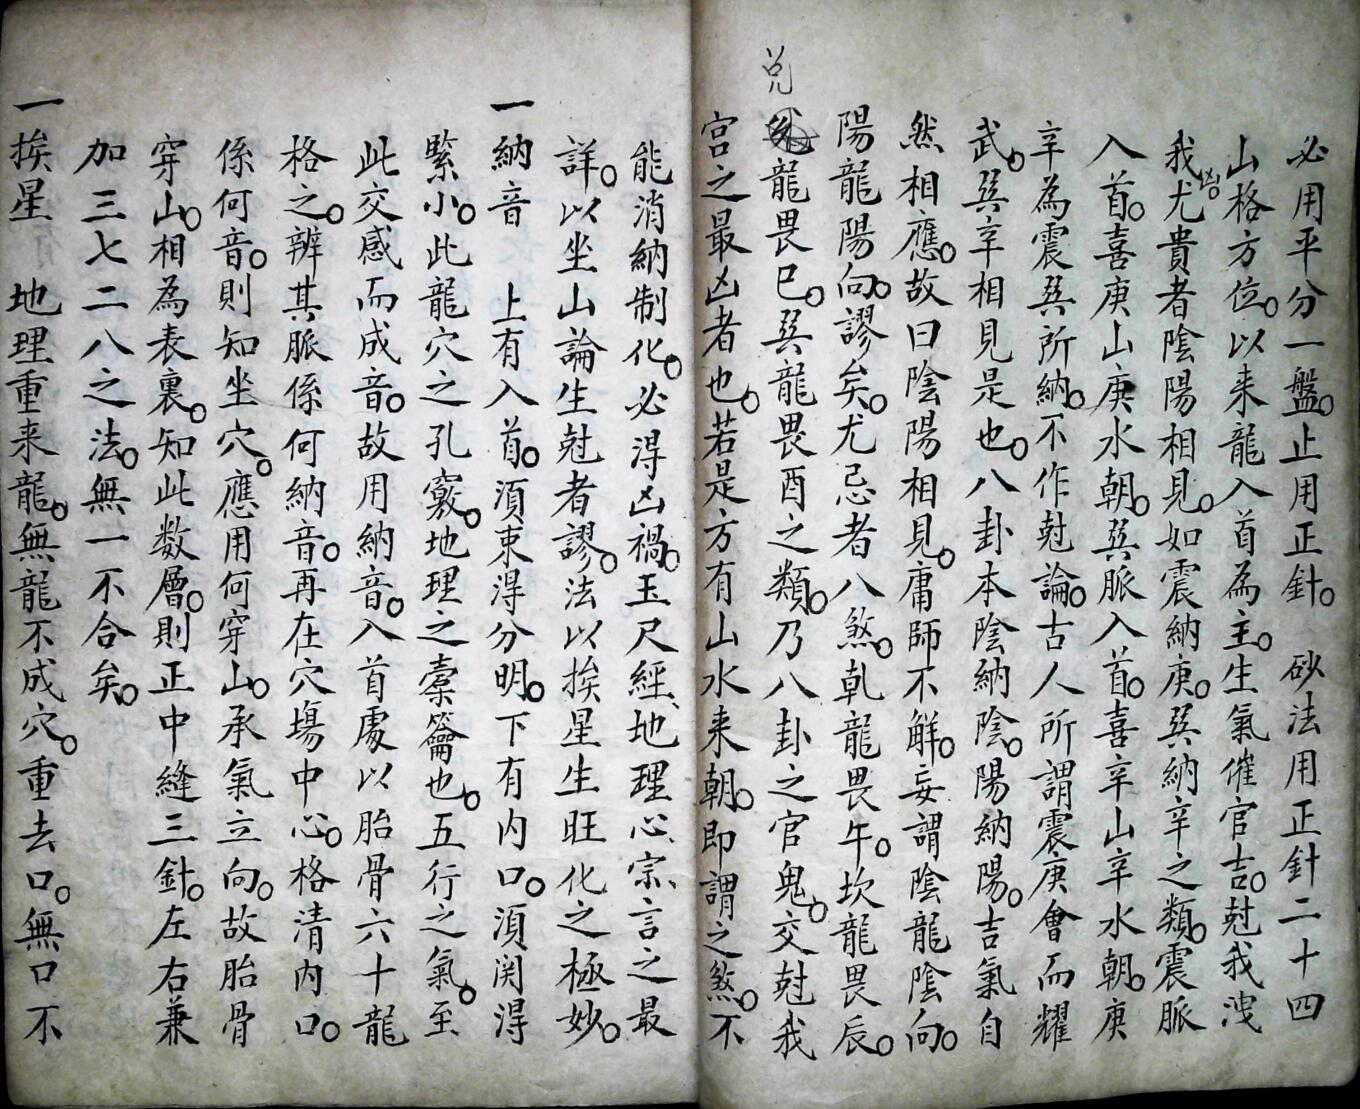 必用平分一盤。止用正針。 砂法用正針二十四
山格方位。以来龍入首為主。生氣催官吉。尅我洩
我凶。尤貴者陰陽相見。如震納庚。巽納辛之類。震脈
入首。喜庚山庚水朝。巽脈入首。喜辛山辛水朝。庚
辛為震巽所納。不作尅論。古人所謂震庚會而耀
武。巽辛相見是也。八卦本陰納陰。陽納陽。吉氣自
然相應。故曰陰陽相見。庸師不解。妄謂陰龍陰向。
陽龍陽向。謬矣。尤忌者八煞。乹龍畏午。坎龍畏辰。
兑龍畏巳。巽龍畏酉之類。乃八卦之官鬼。交尅我
宫之最凶者也。若是方有山水来朝。即謂之煞。不
能消納制化。必淂凶禍。玉尺經、地理心宗、言之最
詳。以坐山論生尅者謬。法以挨星生旺化之極妙。
一納音 上有入首。湏束淂分明。下有内口。湏関淂
緊小。此龍穴之孔竅。地理之槖籥也。五行之氣。至
此交感而成音。故用納音。入首處以胎骨六十龍
格之。辨其脈係何納音。再在穴塲中心。格清内口。
係何音。則知坐穴。應用何穿山。承氣立向。故胎骨
穿山。相為表裏。知此数層。則正中縫三針。左右兼
加三七二八之法。無一不合矣。
一挨星 地理重来龍。無龍不成穴。重去口。無口不